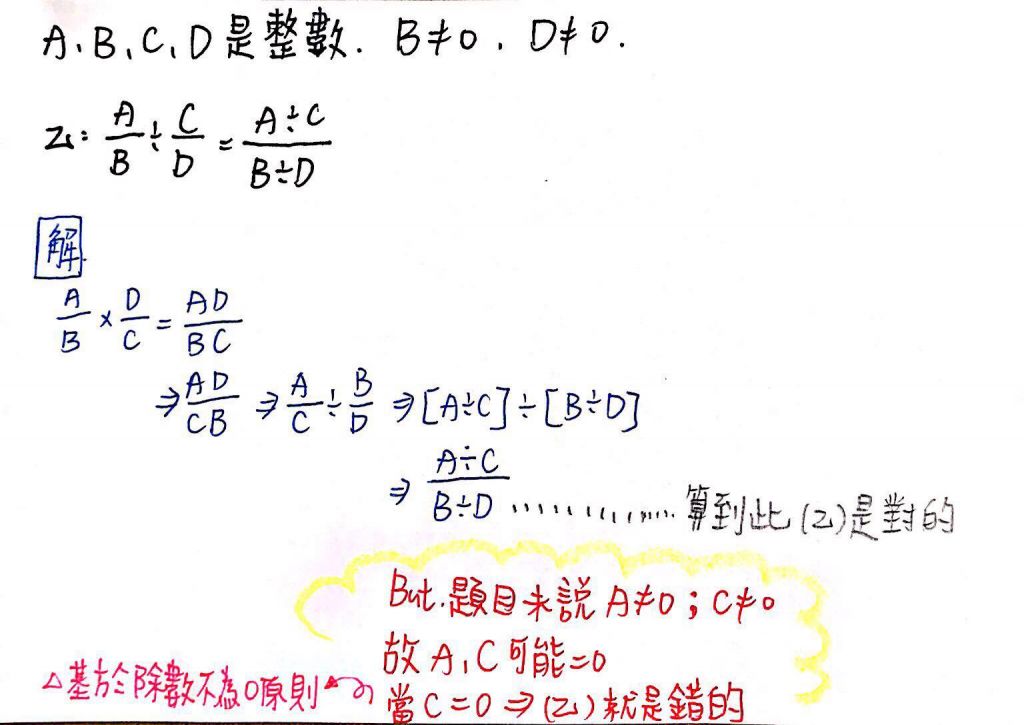 A、B、C、D是整數. B≠0、D≠0.
乙: A/B ÷ C/D = A÷C/B÷D
解
A/B × D/C = AD/BC
⇒ AD/CB ⇒ A/C ÷ B/D ⇒ [A÷C]÷[B÷D]
⇒ A÷C/B÷D ............ 算到此(乙)是對的
But.題目未說A≠0;C≠0
故A、C可能=0
△基於除數不為0原則
當C=0⇒(乙)就是錯的